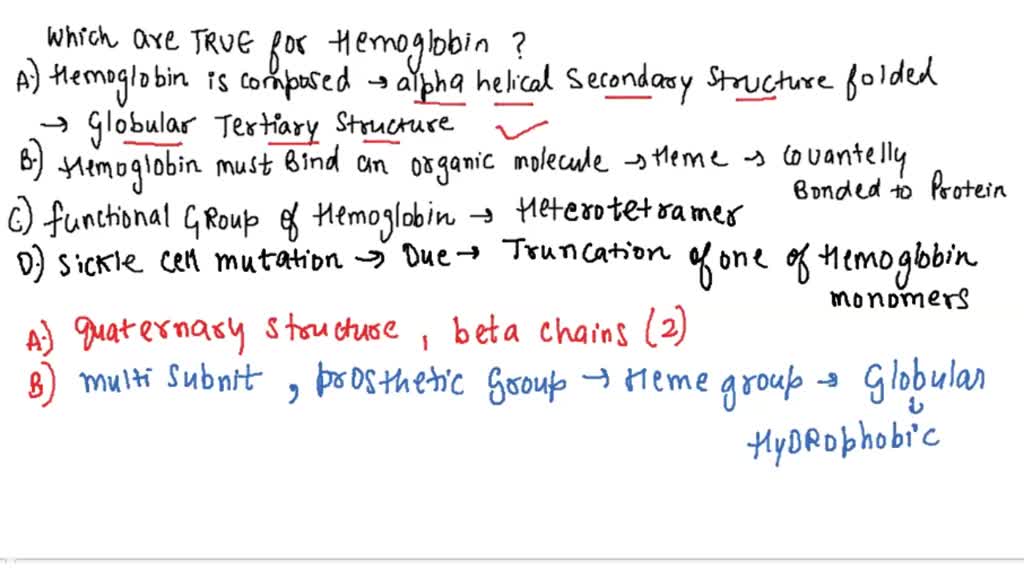 Which are TRUE for Hemoglobin ?
A:) Hemoglobin is composed → alpha helical Secondary Structure folded
→ Globular Tertiary Structure
B:) Hemoglobin must Bind an organic molecule → Heme → Covantelly
Bonded to Protein
C:) functional GRoup of Hemoglobin → Heterotetramer
D:) Sickle cell mutation → Due → Truncation of one of Hemoglobin
monomers
A:) quaternary structure , beta chains (2)
B) multi Subnit , prosthetic Group → Heme group → Globular
HyDROphobic